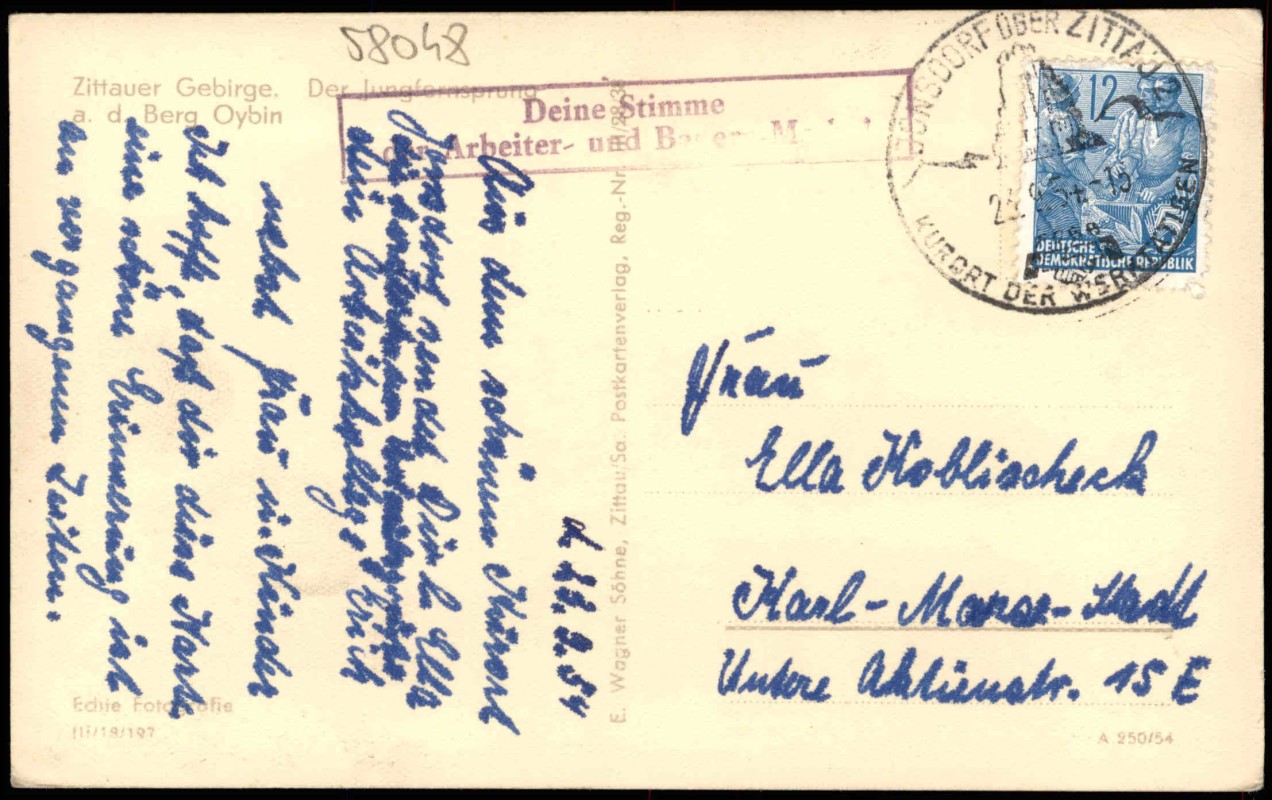 58048
Zittauer Gebirge. Der Jungfernsprung
a. d. Berg Oybin
Deine Stimme
der Arbeiter- und
JONSDORF ÜBER ZITTAU 2
KURORT DER WERKTÄTIGEN
12
DEUTSCHE
DEMOKRATISCHE REPUBLIK
d. 22.9.54
Aus dem schönen Kurort
Jonsdorf sendet Dir l. Ella
die herzlichsten
dein Arbeitskollege Erich
nebst Frau u. Kinder
Ich hoff, daß dir diese Karte
eine schöne Erinnerung ist
an vergangenen Zeiten.
E. Wagner Söhne, Zittau/Sa. Postkartenverlag, Reg.-Nr.
Frau
Ella Koblischeck
Karl-Marx-Stadt
Untere Aktienstr. 15 E
Echte Fotografie
III/18/197
A 250/54